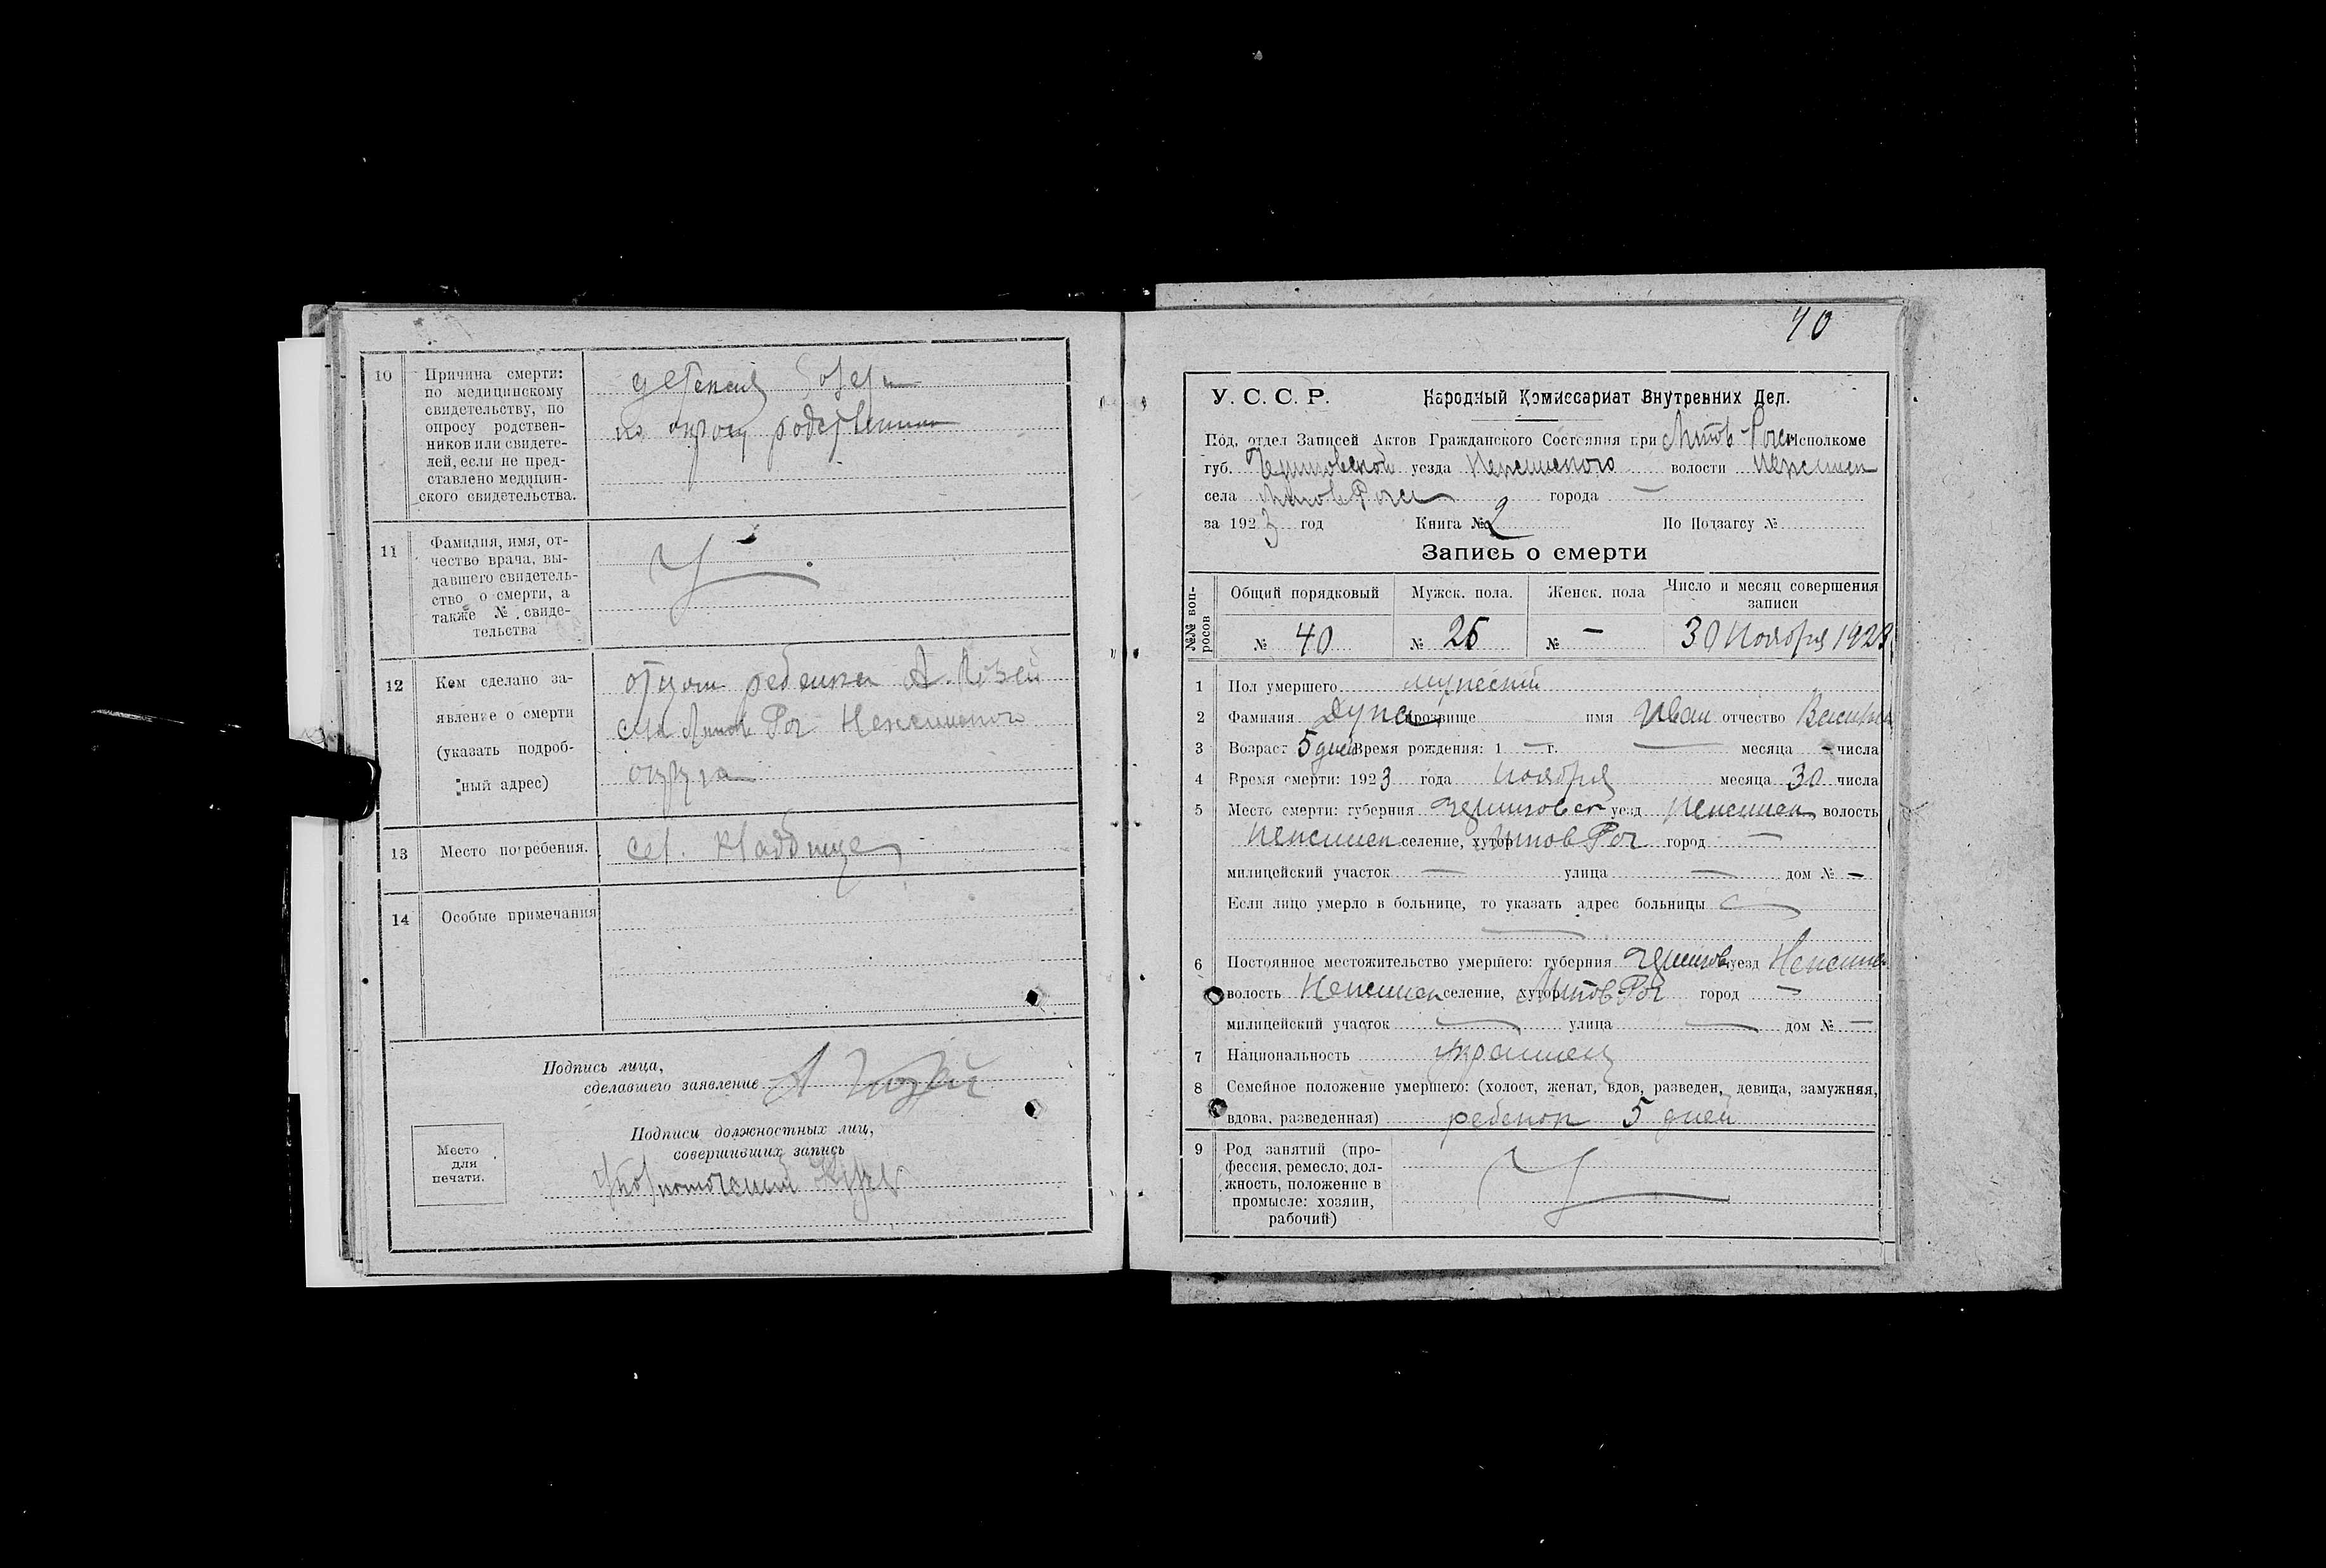 10 Причина смерти:
по медицинскому
свидетельству, по
опросу родствен-
ников или свидете-
лей, если не пред-
ставлено медицин-
ского свидетельства.
по опросу
11 Фамилия, имя, от-
чество врача, вы-
давшего свидетель-
ство о смерти, а
также № свиде-
тельства
12 Кем сделано за-
явление о смерти
(указать подроб-
ный адрес)
отцом ребенка А.
села Липов Рог Нежинского
округа
13 Место погребения.
сел. кладбище
14 Особые примечания
Подпись лица,
сделавшего заявление
Место
для
печати.
Подписи должностных лиц,
совершивших запись
40
У. С. С. Р. Народный Комиссариат Внутренних Дел.
Под, отдел Записей Актов Гражданского Состояния при Липов-Рогс Исполкоме
губ. Черниговской уезда Нежинского волости Нежинск
села Липов Рог города —
за 1923 год Книга № 2 По Подзагсу №
Запись о смерти
№№ воп-
росов
Общий порядковый Мужск. пола. Женск. пола Число и месяц совершения
записи
№ 40 № 26 № — 30 Ноября 1923
1 Пол умершего мужеский
2 Фамилия прозвище имя Иван отчество
3 Возраст 5 дней Время рождения: 1 — г. — месяца - числа
4 Время смерти: 1923 года Ноября месяца 30 числа
5 Место смерти: губерния Черниговск уезд Нежинск волость
Нежинск селение, хутор Липов Рог город —
милицейский участок — улица — дом № —
Если лицо умерло в больнице, то указать адрес больницы —
6 Постоянное местожительство умершего: губерния Чернигов уезд Нежинск
волость Нежинск селение, хутор Липов Рог город —
милицейский участок — улица — дом № —
7 Национальность украинец
8 Семейное положение умершего: (холост, женат, вдов, разведен, девица, замужняя,
вдова, разведенная) ребенок 5 дней
9 Род занятий (про-
фессия, ремесло, дол-
жность, положение в
промысле: хозяин,
рабочий)